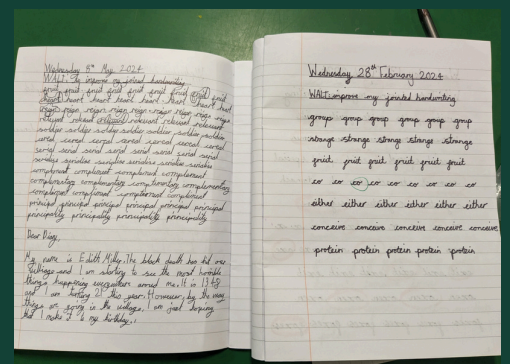 Wednesday 8th May 2024
WALT: To improve my joined handwriting
fruit fruit fruit fruit fruit fruit fruit fruit fruit
heart heart heart heart heart heart heart heart
reign reign reign reign reign reign reign reign
relevant relevant relevant relevant relevant
soldier soldier soldier soldier soldier soldier
cereal cereal cereal cereal cereal cereal
serial serial serial serial serial serial serial
complement complement complement
complementary complementary complementary complementary
compliment compliment compliment compliment
principal principal principal principal principal principal
principality principality principality principality
Dear Diary,
My name is Edith Milly. The black death has hit our
village and I am starting to see the most horrible
things happening everywhere around me. It is 1348
and I am turning 21 this year. However, by the way
things are going in the village, I am just hoping
that I make it to my birthday.
Wednesday 28th February 2024
WALT: improve my jointed handwriting
group group group group group group
strange strange strange strange strange
fruit fruit fruit fruit fruit fruit
either either either either either
conceive conceive conceive conceive conceive
protein protein protein protein protein